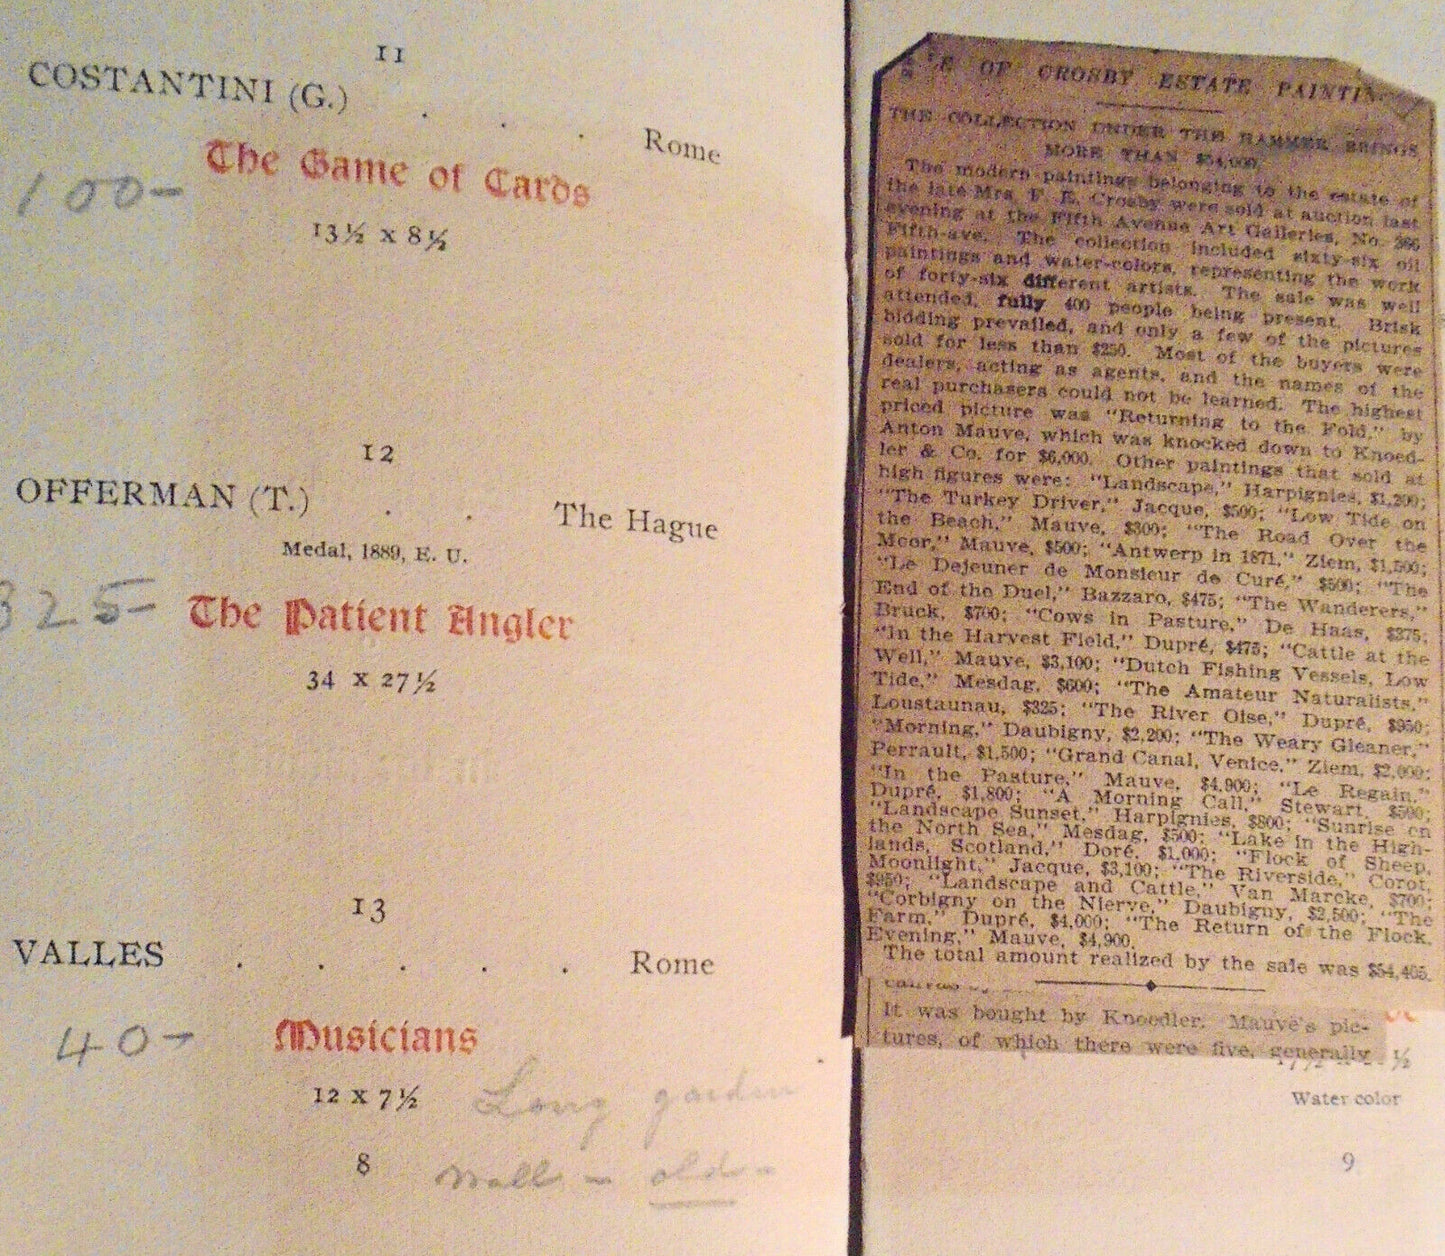 11
COSTANTINI (G.) . . . Rome
The Game of Cards
100-
13½ x 8½
12
OFFERMAN (T.) . . The Hague
Medal, 1889, E. U.
325- The Patient Angler
34 x 27½
13
VALLES . . . . . Rome
40- Musicians
12 x 7½ Long garden
8 wall - old -
E OF CROSBY ESTATE PAINTIN
THE COLLECTION UNDER THE HAMMER BRINGS
MORE THAN $54,000.
The modern paintings belonging to the estate of
the late Mrs. F. E. Crosby were sold at auction last
evening at the Fifth Avenue Art Galleries, No. 366
Fifth-ave. The collection included sixty-six oil
paintings and water-colors, representing the work
of forty-six different artists. The sale was well
attended, fully 400 people being present. Brisk
bidding prevailed, and only a few of the pictures
sold for less than $250. Most of the buyers were
dealers, acting as agents, and the names of the
real purchasers could not be learned. The highest
priced picture was "Returning to the Fold," by
Anton Mauve, which was knocked down to Knoed-
ler & Co. for $6,000. Other paintings that sold at
high figures were: "Landscape," Harpignies, $1,200;
"The Turkey Driver," Jacque, $500; "Low Tide on
the Beach," Mauve, $300; "The Road Over the
Moor," Mauve, $500; "Antwerp in 1871," Ziem, $1,500;
"Le Dejeuner de Monsieur de Curé," $500; "The
End of the Duel," Bazzaro, $475; "The Wanderers,"
Bruck, $700; "Cows in Pasture," De Haas, $375;
"In the Harvest Field," Dupré, $475; "Cattle at the
Well," Mauve, $3,100; "Dutch Fishing Vessels, Low
Tide," Mesdag, $600; "The Amateur Naturalists,"
Loustaunau, $325; "The River Oise," Dupré, $950;
"Morning," Daubigny, $2,200; "The Weary Gleaner,"
Perrault, $1,500; "Grand Canal, Venice," Ziem, $2,000;
"In the Pasture," Mauve, $4,900; "Le Regain,"
Dupré, $1,800; "A Morning Call," Stewart, $500;
"Landscape Sunset," Harpignies, $800; "Sunrise on
the North Sea," Mesdag, $500; "Lake in the High-
lands, Scotland," Doré, $1,000; "Flock of Sheep,
Moonlight," Jacque, $3,100; "The Riverside," Corot,
$950; "Landscape and Cattle," Van Marcke, $700;
"Corbigny on the Nierve," Daubigny, $2,500; "The
Farm," Dupré, $4,000; "The Return of the Flock,
Evening," Mauve, $4,900.
The total amount realized by the sale was $54,405.
It was bought by Knoedler. Mauve's pic-
tures, of which there were five, generally
Water color
9